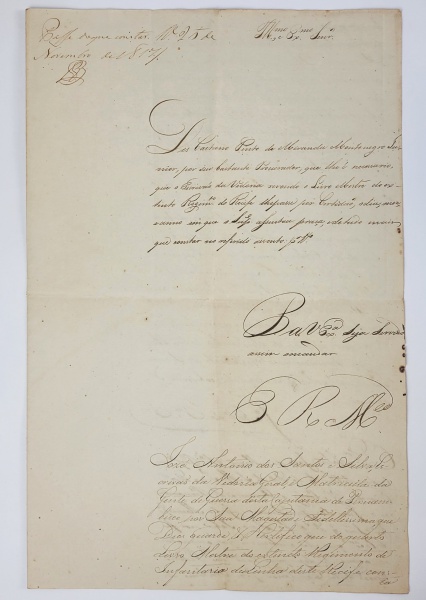 Passe do que constar. R.e 25 de
Novembro de 1817
Illmo e Exmo Snr.
Diz Caetano Pinto de Miranda Montenegro Ju-
nior, por seu bastante Procurador, que lhe é necessario,
que o Escrivão da Vedoria revendo o Livro Mestre do ex-
tincto Regimto do Recife lhe passe por Certidão, o dia, mez,
e anno em que o Supe assentou praça, e de tudo mais,
que constar no referido assento, pto
P. a V. Exa seja servido
assim o mandar
E R Mce
José Antonio dos Santos e Silva, Es-
crivão da Vedoria Geral, e Matricula da
Gente de Guerra desta Capitania de Pernam-
buco, por Sua Magestade Fidelissima, que
Deos guarde &. Certifico, que do quarto
Livro Mestre do extincto Regimento de
Infantaria de Linha deste Recife, cons-